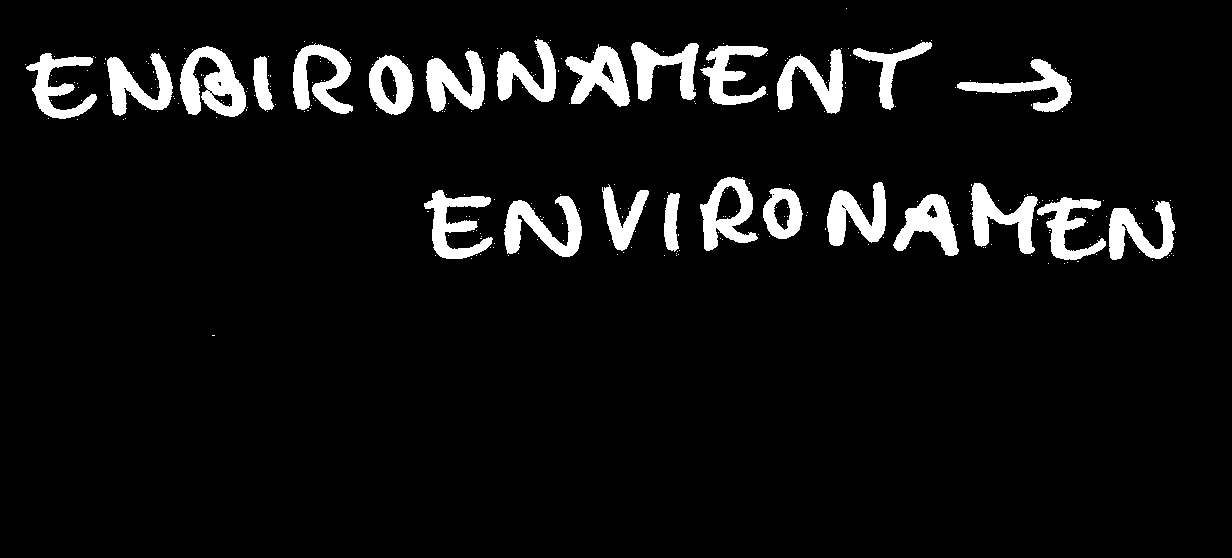 ENBIRONNAMENT →
ENVIRONAMEN